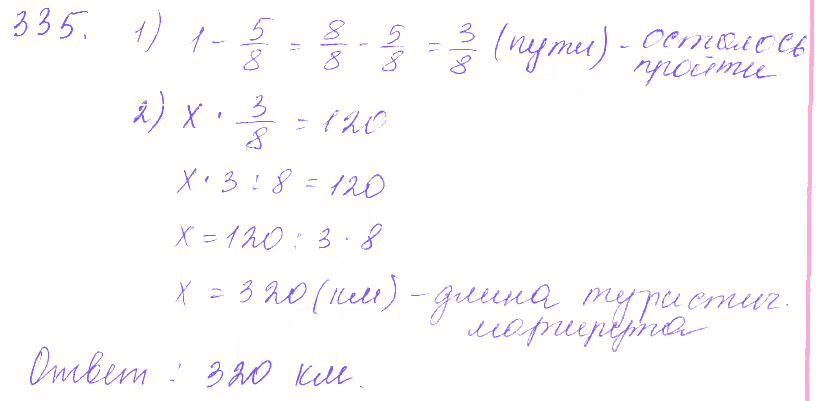 335. 1) 1 - 5/8 = 8/8 - 5/8 = 3/8 (пути) - осталось
пройти
2) x · 3/8 = 120
x · 3 : 8 = 120
x = 120 : 3 · 8
x = 320 (км) - длина туристич.
маршрута
Ответ : 320 км.